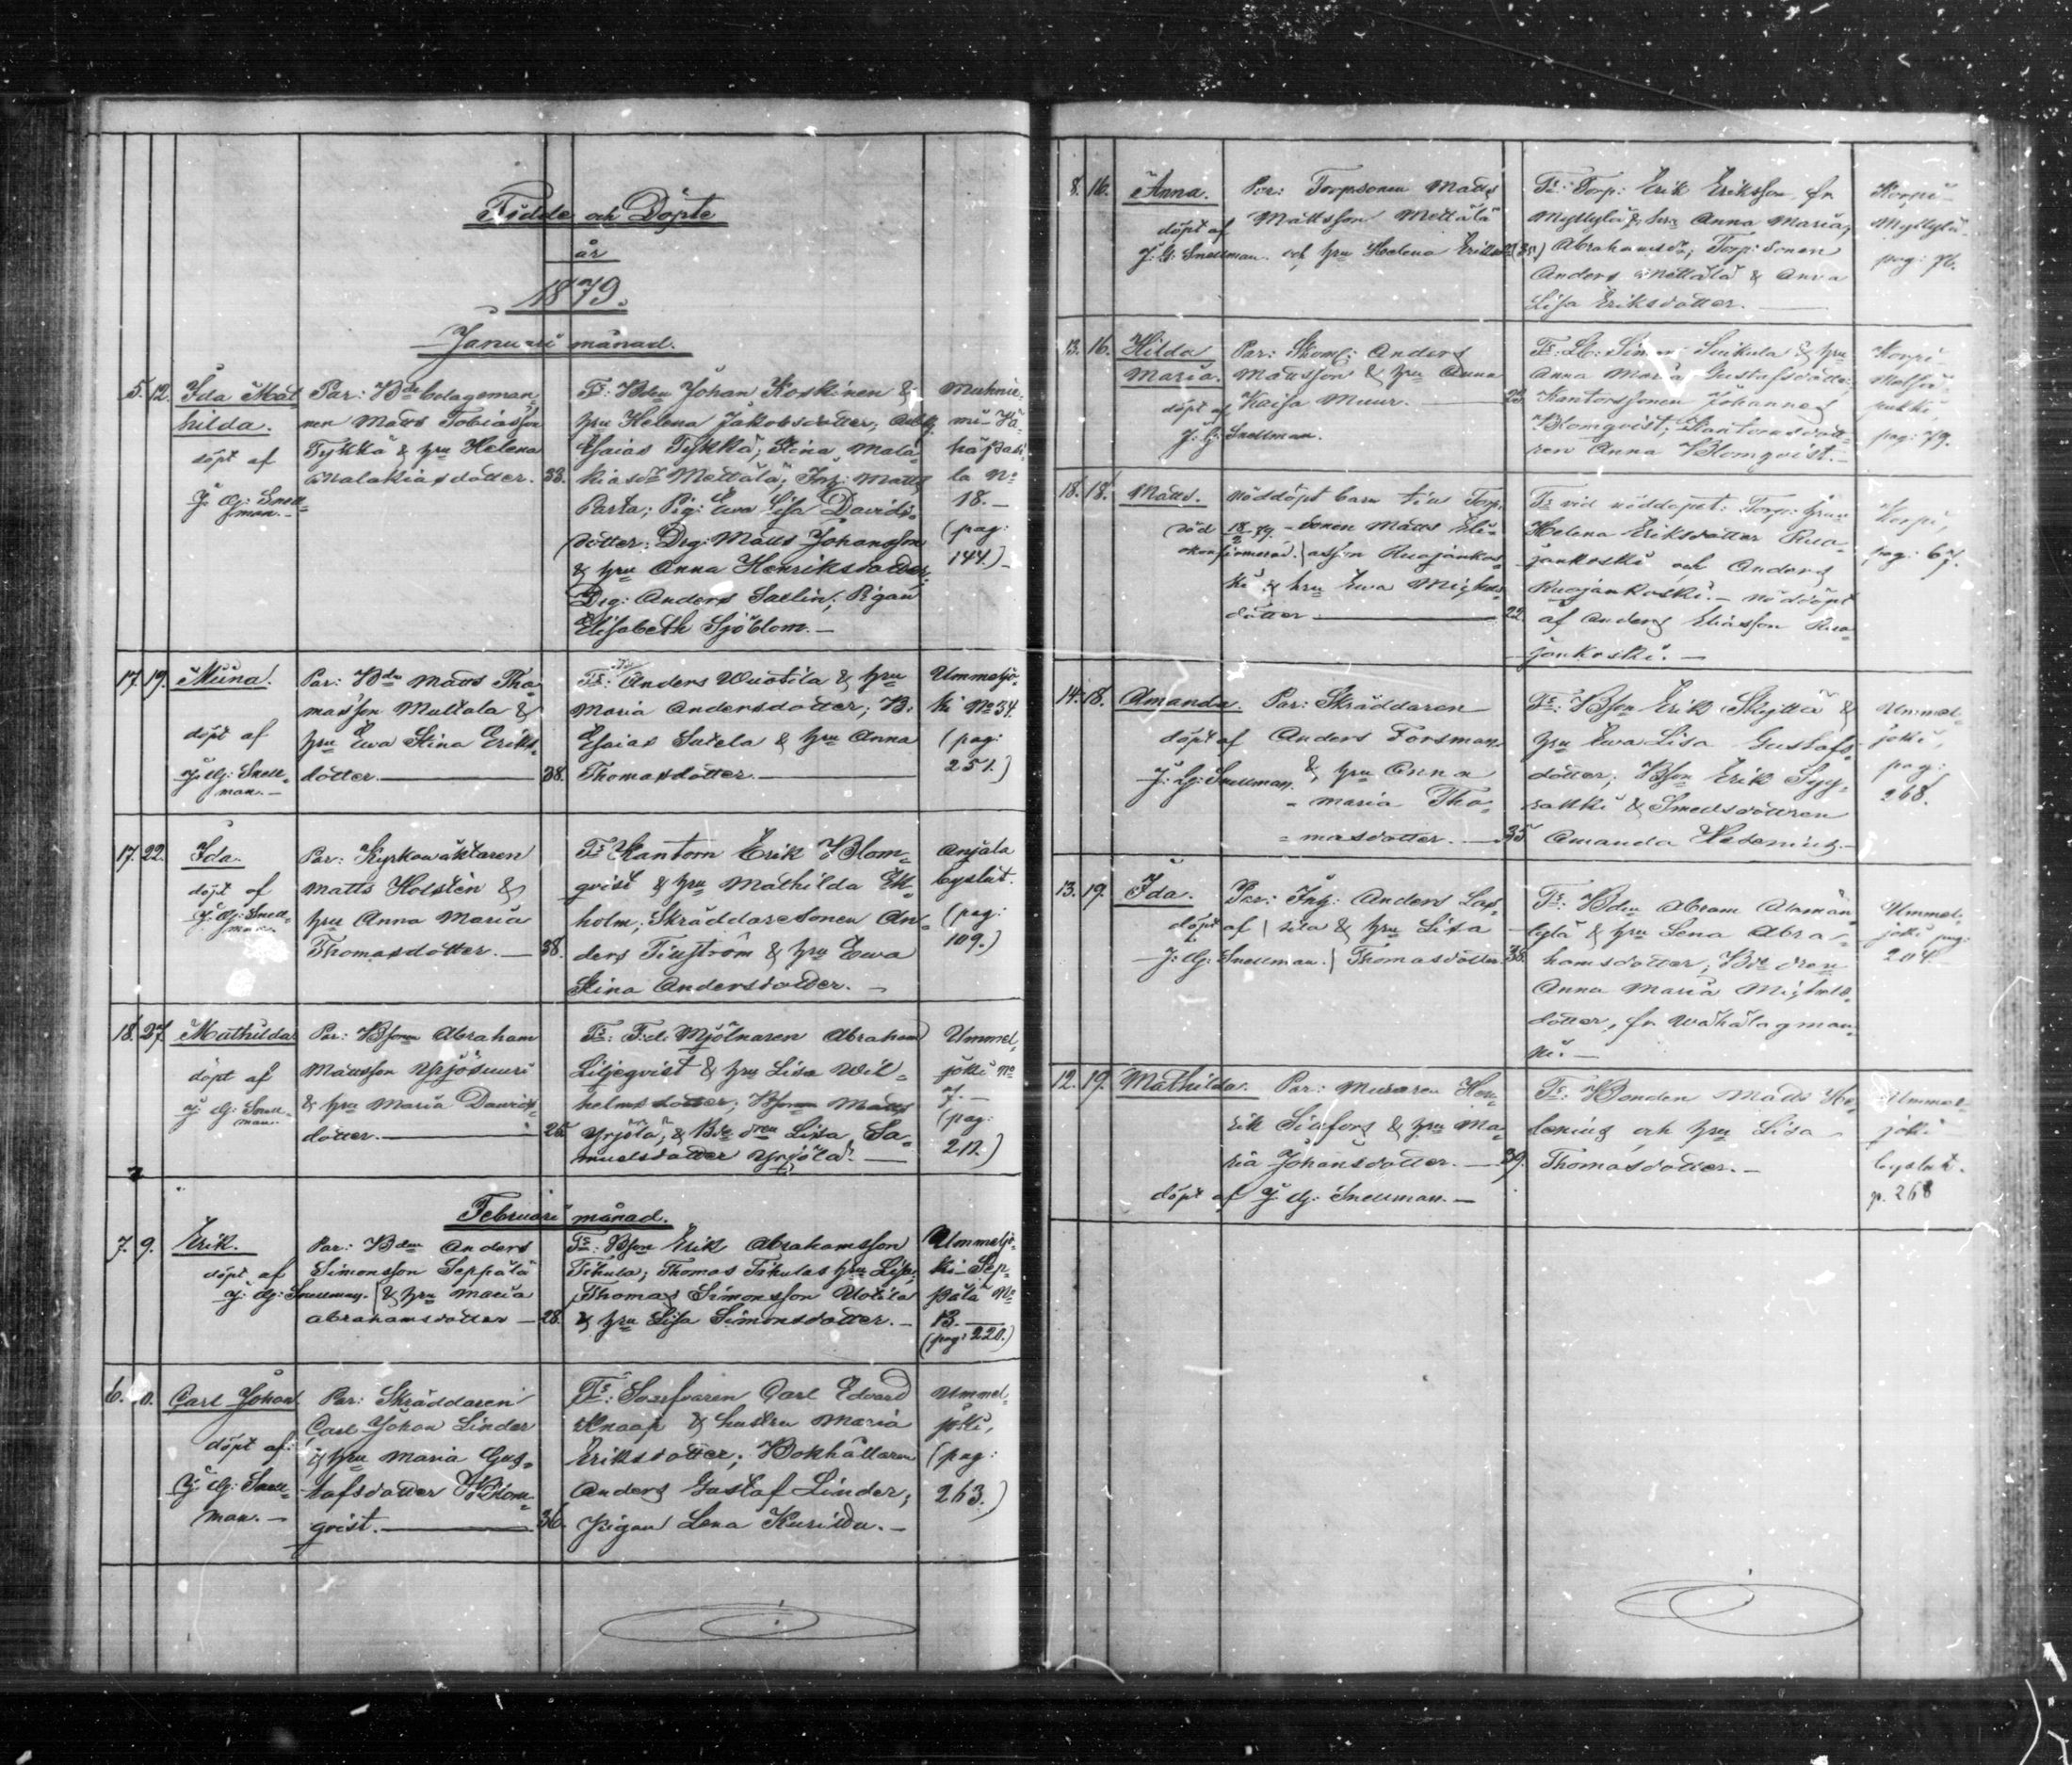 Födde och Döpte
år
1879.
Januari månad.
5. 12. Ida Mat-
hilda.
döpt af
J. G. Snell-
man.
Par: Bde bolagsman-
nen Matts Tobiasson
Tykkä & hru Helena
Malakiasdotter. 33.
Fs: Bden Johan Koskinen &
hru Helena Jakobsdotter;
Esaias Tykkä; Stina Mala-
kiasdr Mettälä; Inh: Matts
Parta; Pig: Ewa Lisa Davids-
dotter; Drg: Matts Johansson
& hru Anna Henriksdotter;
Drg: Anders Sallin; Pigan
Elisabeth Sjöblom.
la No
18.
(pag:
144.)
17. 19. Miina.
döpt af
J. G. Snell-
man.
Par: Bdn Matts Tho-
masson Muttala &
hru Ewa Stina Eriks-
dotter. 38.
Fs: Anders Wuotila & hru
Maria Andersdotter; B.
Esaias Sutela & hru Anna
Thomasdotter.
Ummeljo-
ki No 34.
(pag:
251.)
17. 22. Ida.
döpt af
J. G. Snell-
man.
Par: Kyrkowäktaren
Matts Holstén &
hru Anna Maria
Thomasdotter. 38.
Fs Kantorn Erik Blom-
qvist & hru Mathilda Ek-
holm; Skräddaresonen An-
ders Finström & hru Ewa
Stina Andersdotter.
Anjala
byslut.
(pag:
109.)
18. 27. Mathilda
döpt af
J. G. Snell-
man.
Par: Bsonen Abraham
Mattsson Yrjösuuri
& hru Maria Davids-
dotter. 25.
Fs: F.d. Mjölnaren Abraham
Liljeqvist & hru Lisa Wil-
helmsdotter; Bsonen Matts
Yrjölä, & Bde dren Lisa Sa-
muelsdotter Yrjölä.
Ummel-
joki No
7.
(pag:
211.)
Februari månad.
7. 9. Erik.
döpt af
J. G. Snellman.
Par: Bden Anders
Simonsson Seppälä
& hru Maria
Abrahamsdotter 28.
Fs: Bson Erik Abrahamsson
Tikula; Thomas Tikulas hru Lisa;
Thomas Simonsson Uotila
& hru Lisa Simonsdotter.
Ummeljo-
ki-Sep-
pälä No
13.
(pag: 220.)
6. Carl Johan
döpt af:
J. G. Snell-
man.
Par: Skräddaren
Carl Johan Linder
& hru Maria Gus-
tafsdotter Blom-
qvist. 36.
Fs: Swarfvaren Carl Edvard
Knaap & hustru Maria
Eriksdotter; Bokhållaren
Anders Gustaf Linder;
Pigan Lena Kurittu.
Ummel-
joki,
(pag:
263.)
8. 16. Anna.
döpt af
J. G. Snellman.
Par: Torpsonen Matts
Mattsson Mettälä
och hru Helena Eriksdr (35.)
Fs: Torp: Erik Eriksson fr
Myllylä & hru Anna Maria
Abrahamsdr; Torp: Sonen
Anders Mettälä & Anna
Lisa Eriksdotter.
Korpi-
Myllylä
pag: 76.
13. 16. Hilda
Maria.
döpt af
J. G. Snellman.
Par: Skoml: Anders
Mattsson & hru Anna
Kaisa Muur. 23.
Anna Maria Gustafsdotter;
Kantorssonen Johannes
Blomqvist; Kantorsdott-
ren Anna Blomqvist.
Korpi-
pag: 79.
18. 18. Matts.
död 18/2 79.
okonfirmerad.
Nöddöpt barn till Torp-
sonen Matts Eli-
asson Ruojankos-
ki & hru Ewa Michels-
dotter 22.
Fs vid nöddopet: Torp: hrun
Helena Eriksdotter Ruo-
jankoski och Anders
Ruojankoski. Nöddöpt
af Anders Eliasson Ruo-
jankoski.
Korpi,
pag: 67.
14. 18. Amanda.
döpt af
J. G. Snellman.
Par: Skräddaren
Anders Forsman
& hru Anna
Maria Tho-
masdotter. 35
Fs: Bson Erik Skyttä &
hru Ewa Lisa Gustafs-
dotter; Bson Erik Syy-
rakki & Smedsdottren
Amanda Hedening.
Ummel-
joki,
pag:
268.
13. 19. Ida.
döpt af
J. G. Snellman.
Par: Inh: Anders Lax-
sila & hru Lisa
Thomasdotter 38.
Fs: Bden Abram Alamän-
tylä & hru Lena Abra-
hamsdotter; Bde dren
Anna Maria Michels-
dotter, fr Wähälagman-
ni.
Ummel-
joki pag:
204.
12. 19. Mathilda.
Par: Muraren Hen-
rik Siefors & hru Ma-
ria Johansdotter. 39.
döpt af J. G. Snellman.
Fs: Bonden Matts He-
dening och hru Lisa
Thomasdotter.
Ummel-
joki
byslut.
p. 268